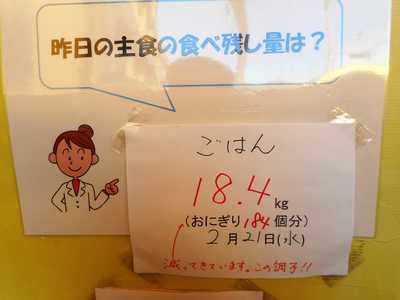 昨日の主食の食べ残し量は？
ごはん
18.4 kg
(おにぎり184個分)
2月21日(水)
減ってきています。この調子!!